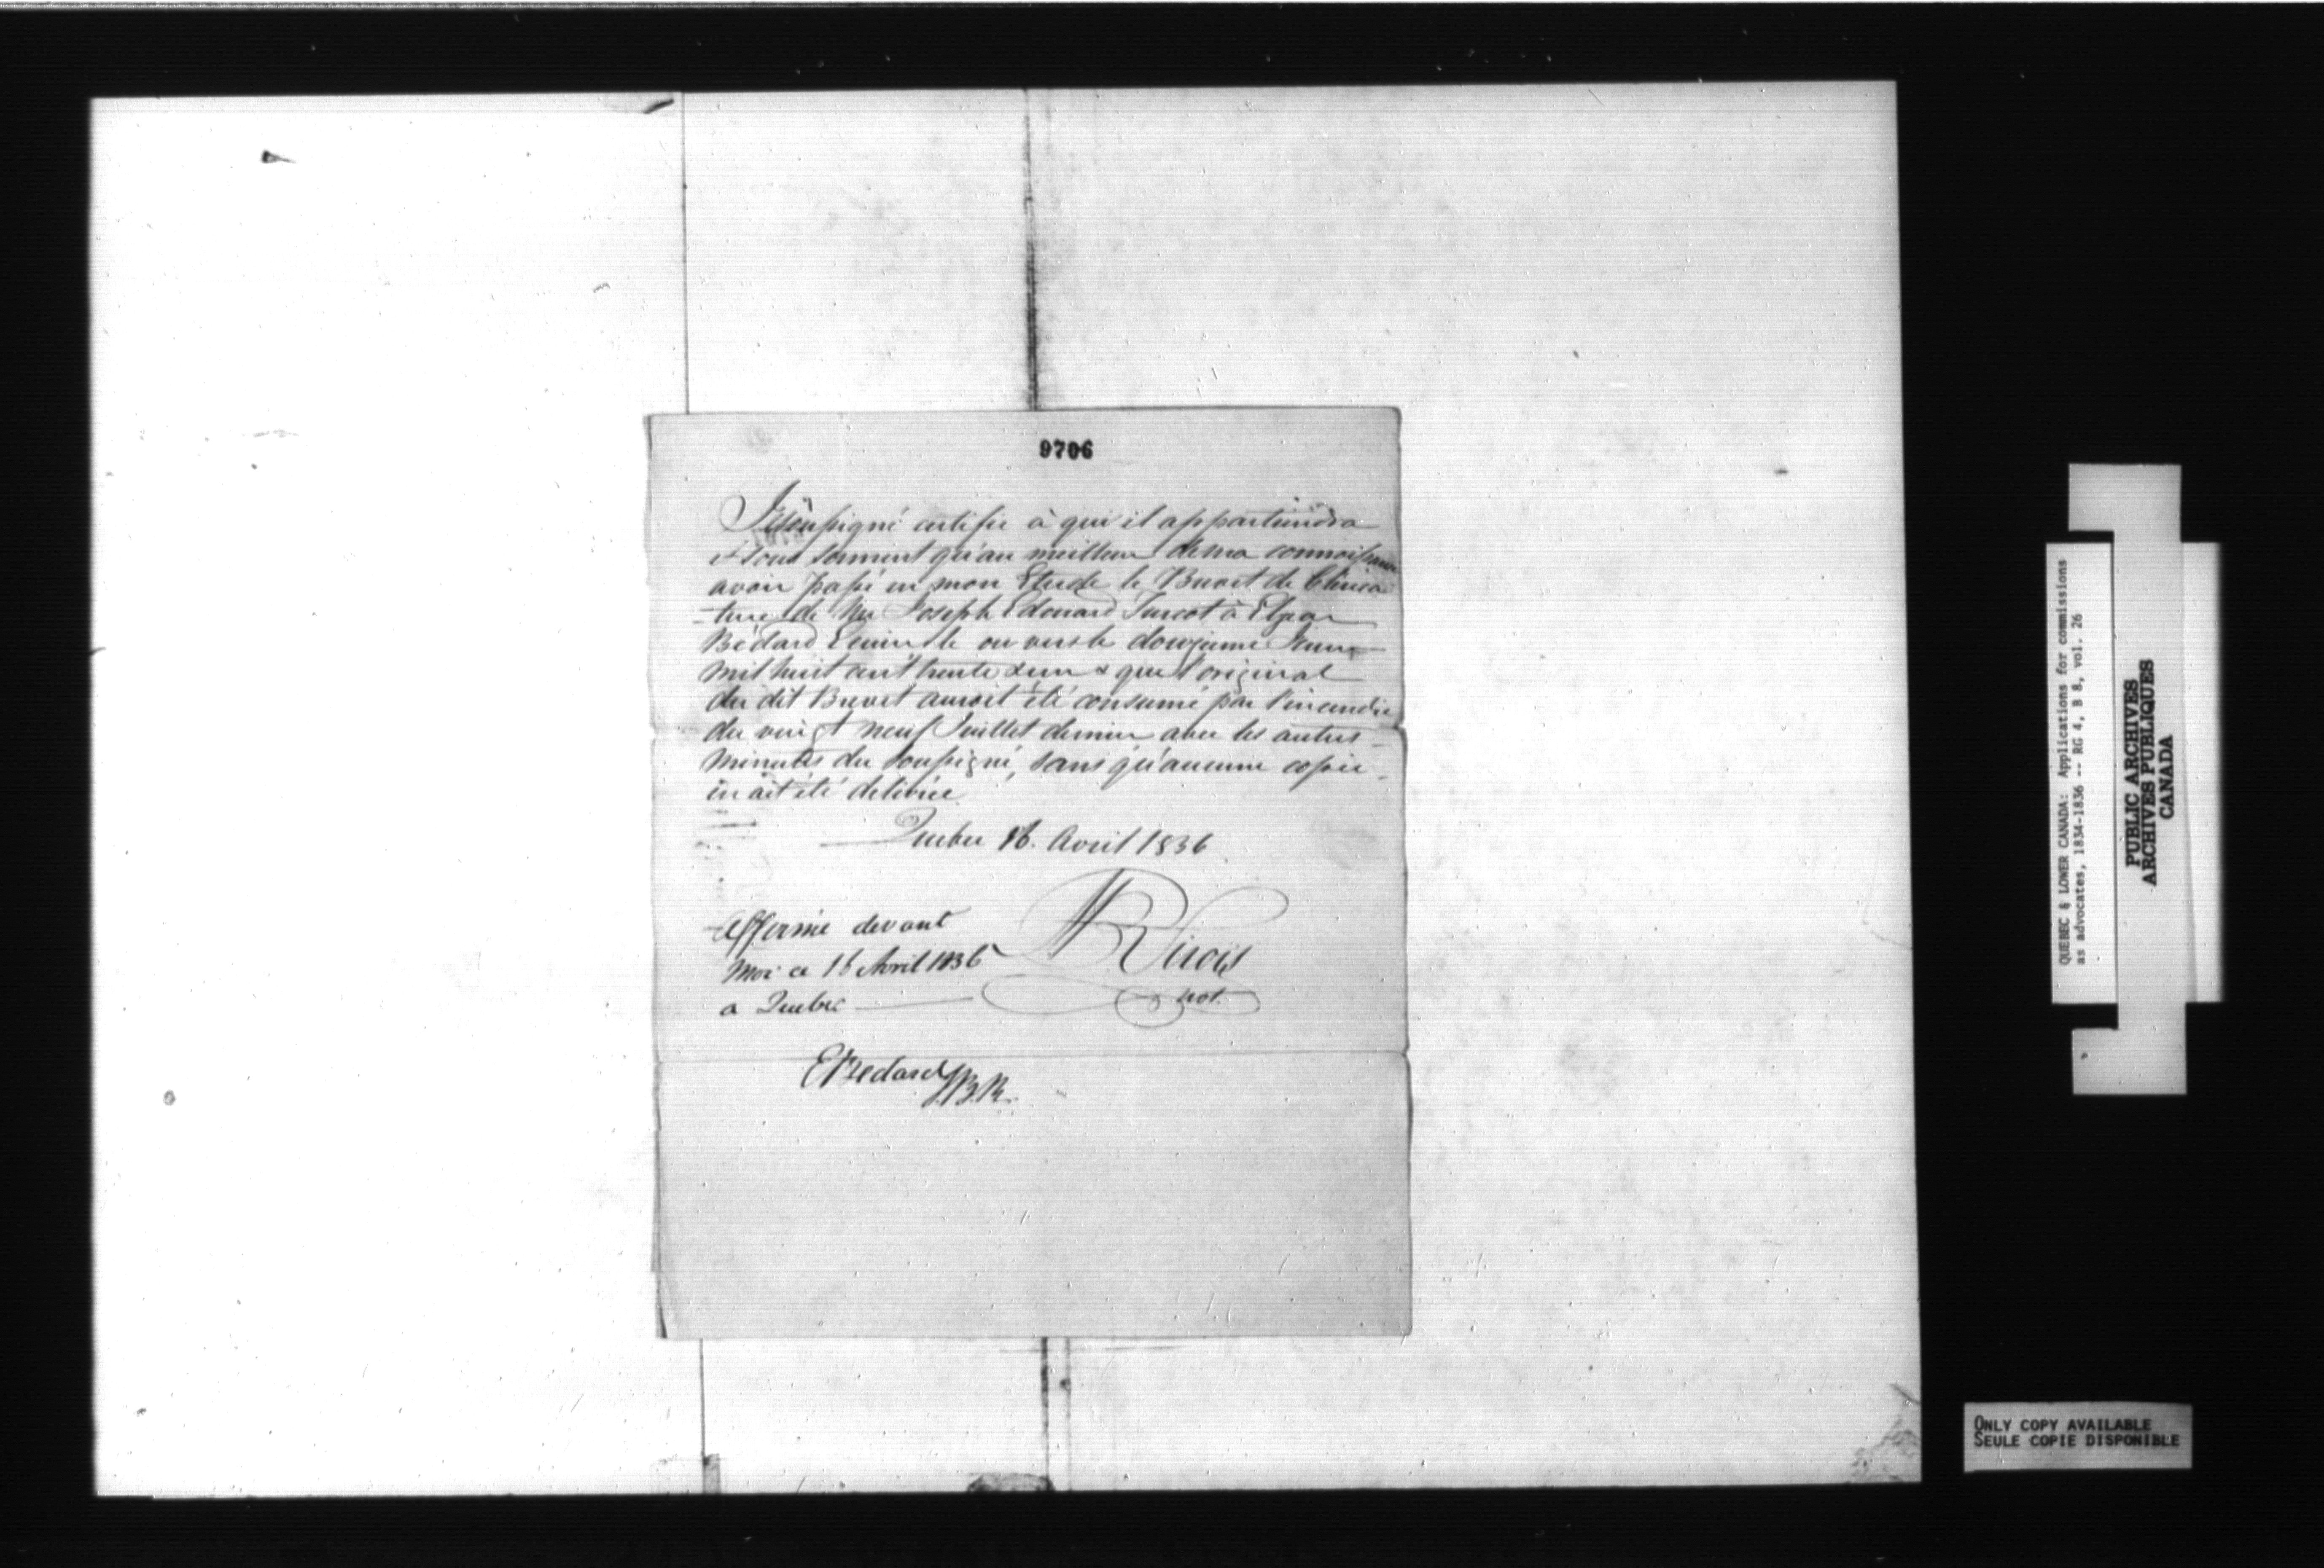 9706
Je soussigné certifie à qui il appartiendra
& sous serment qu'au meilleur de ma connoissance
avoir passé en mon Etude le Brevet de Clérica
-ture de Mr Joseph Edouard Turcot à Elzear
Bédard Ecuier le ou vers le douzieme
mil huit cent trente & un & que l'original
du dit Brevet auroit été consumé par l'incendie
du vingt neuf Juillet dernier avec les autres
minutes du soussigné, sans qu'aucune copie
en ait été delivrée
Quebec 16. Avril 1836
Affirmé devant
moi ce 16 Avril 1836
a Quebec
Sirois
not.
E Bedard J.B.R.
QUEBEC & LOWER CANADA: Applications for commissions
as advocates, 1834-1836 -- RG 4, B 8, vol. 26
PUBLIC ARCHIVES
ARCHIVES PUBLIQUES
CANADA
ONLY COPY AVAILABLE
SEULE COPIE DISPONIBLE